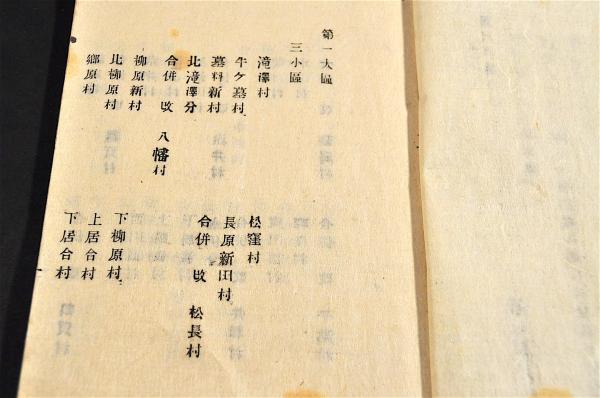 第一大區
三小區
滝澤村
牛ケ墓村
墓料新村
北滝澤分
合併改八幡村
柳原新村
北柳原村
郷原村
松窪村
長原新田村
合併改松長村
下柳原村
上居合村
下居合村